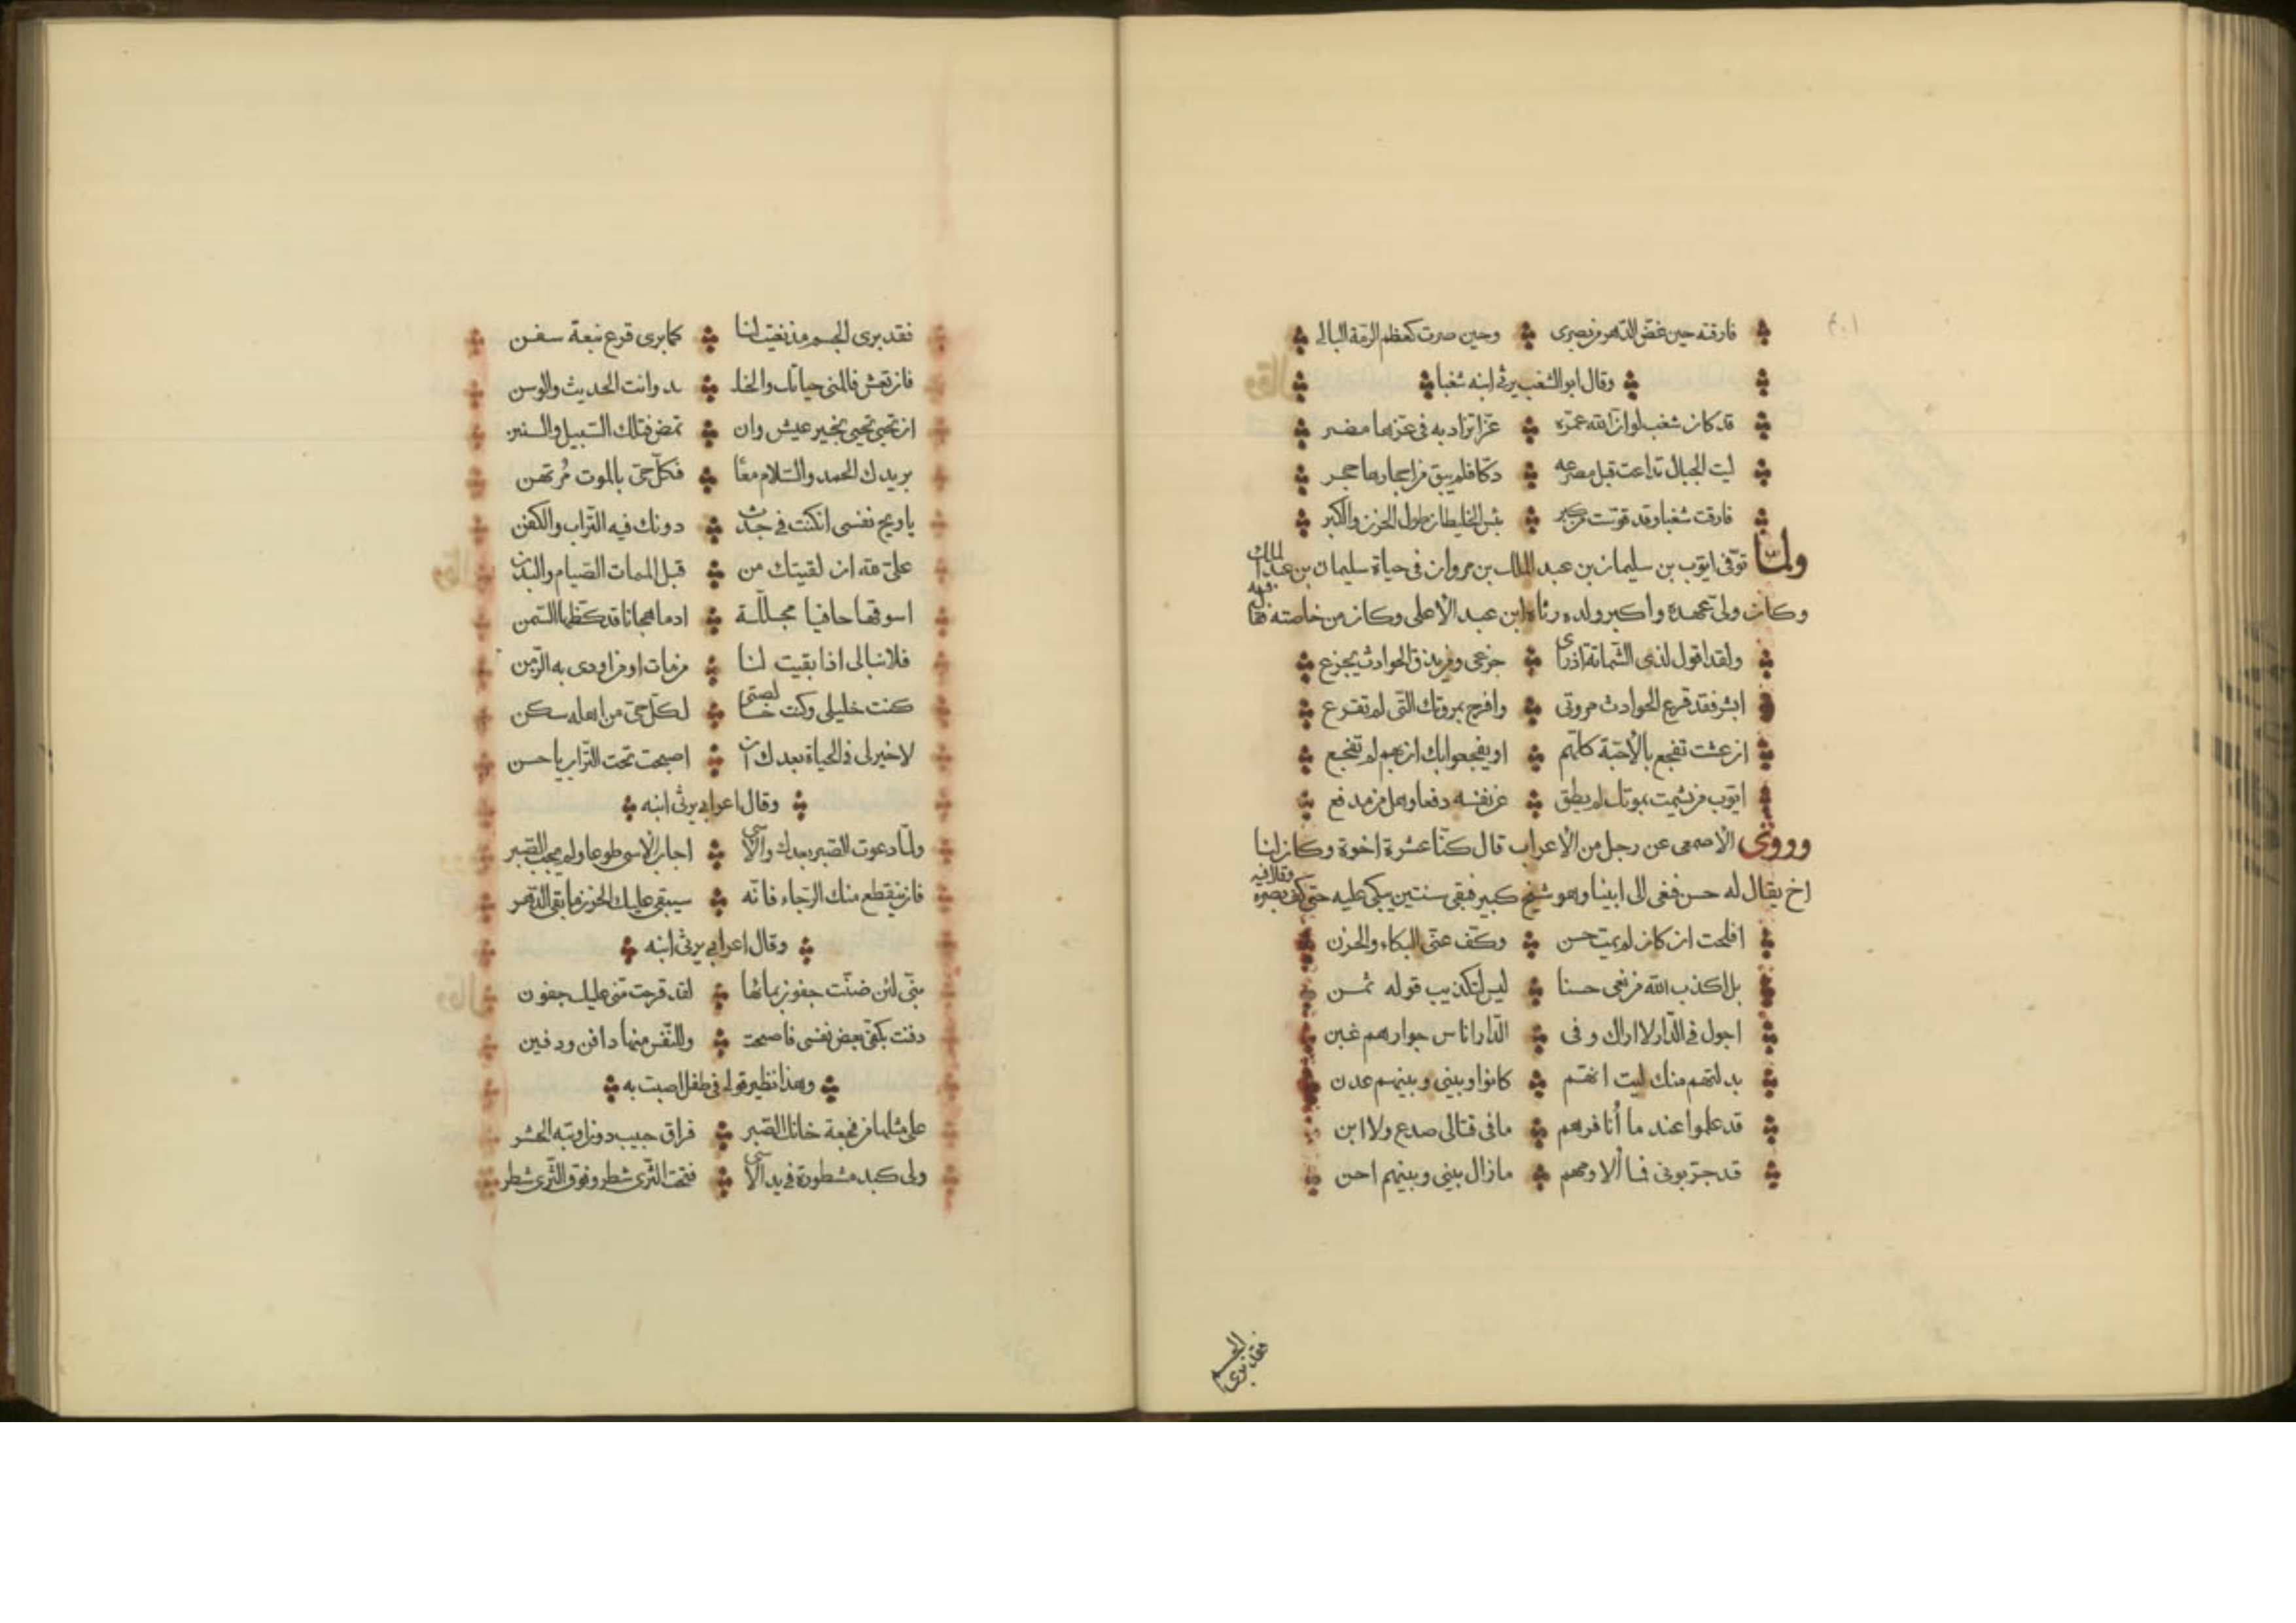 فارقته حين غضّ الدّهر من بصرى وحين صرت كعظم الرمّة البالى
وقال ابو الشغب يرثى ابنه شغبا
قد كان شغب لو ان الله عمّره عزّا تزاد به فى عزها مضر
ليت الجبال تداعت قبل مصرعه دكّا فلم يبق من احجارها حجر
فارقت شغبا وقد قوّست من كبر بئس الخليطان طول الحزن والكبر
ولمّا توفّى ايّوب بن سليمان بن عبد الملك بن مروان فى حياة سليمان بن عبد الملك
وكان ولىّ عهده واكبر ولده رثاه ابن عبد الأعلى وكان من خاصته فقال فيه
ولقد اقول لذى الشّماتة اذ رأى جزعى ومن يذق الحوادث يجزع
ابشر فقد قرع الحوادث مروتى وافرح بمروتك التّى لم تقرع
ان عشت تفجع بالأحبّة كلّهم او يفجعوا بك ان بهم لم تفجع
ايّوب من يشمت بموتك لم يطق عن نفسه دفعا وهل من مدفع
وروى الأصمعى عن رجل من الأعراب قال كنّا عشرة اخوة وكان لنا
اخ يقال له حسن فنعى الى ابينا وهو شيخ كبير فبقى سنتين يبكى عليه حتى كفّ بصره وقال فيه
افلحت ان كان لم يمت حسن وكفّ عنّى البكاء والحزن
بل اكذب الله من نعى حسنا ليس لتكذيب قوله ثمن
اجول فى الدّار لا اراك وفى الدّار اناس جوارهم غبن
بدلتهم منك ليت انهّم كانوا وبينى وبينهم عدن
قد علموا عند ما أنافرهم ما فى قناتى صدع ولا ابن
قد جرّبونى فما ألاومهم ما زال بينى وبينهم احن
فقد برى الجسم
فقد برى الجسم مذ نعيت لنا كما برى فرع نبعة سفن
فان تعش فالمنى حياتك والخلـ ـد وانت الحديث والوسن
ان تحيى تحيى بخير عيش وان تمض فتلك السّبيل والسنن
بريدك الحمد والسّلام معًا فكلّ حىّ بالموت مُرتهن
يا ويح نفسى ان كنت فى جدث دونك فيه التّراب والكفن
علىّ لله ان لقيتك من قبل الممات الصّيام والبدن
اسوقها حافيا مجلّلة ادما هجانا قد كظّها السّمن
فلا نبالى اذا بقيت لنا من مات او من اودى به الزّمن
كنت خليلى وكنت خالصتى لكلّ حىّ من اهله سكن
لا خير لى فى الحياة بعدك ان اصبحت تحت التّراب يا حسن
وقال اعرابى يرثى ابنه
ولمّا دعوت الصّبر بعدك والأسى اجاب الأسى طوعا ولم يجب الصّبر
فان ينقطع منك الرّجاء فانّه سيبقى عليك الحزن ما بقى الدّهر
وقال اعرابى يرثى ابنه
بنىّ لئن ضنّت جفون بمائها لقد قرحت منى عليك جفون
دفنت بكفّى بعض نفسى فاصبحت وللنّفس منها دافن ودفين
وهذا نظير قوله فى طفل اصيب به
على مثلها من فجعة خانك الصّبر فراق حبيب دون اوبته الحشر
ولى كبد مشطورة فى يد الأسى فتحت الثّرى شطر وفوق الثّرى شطر